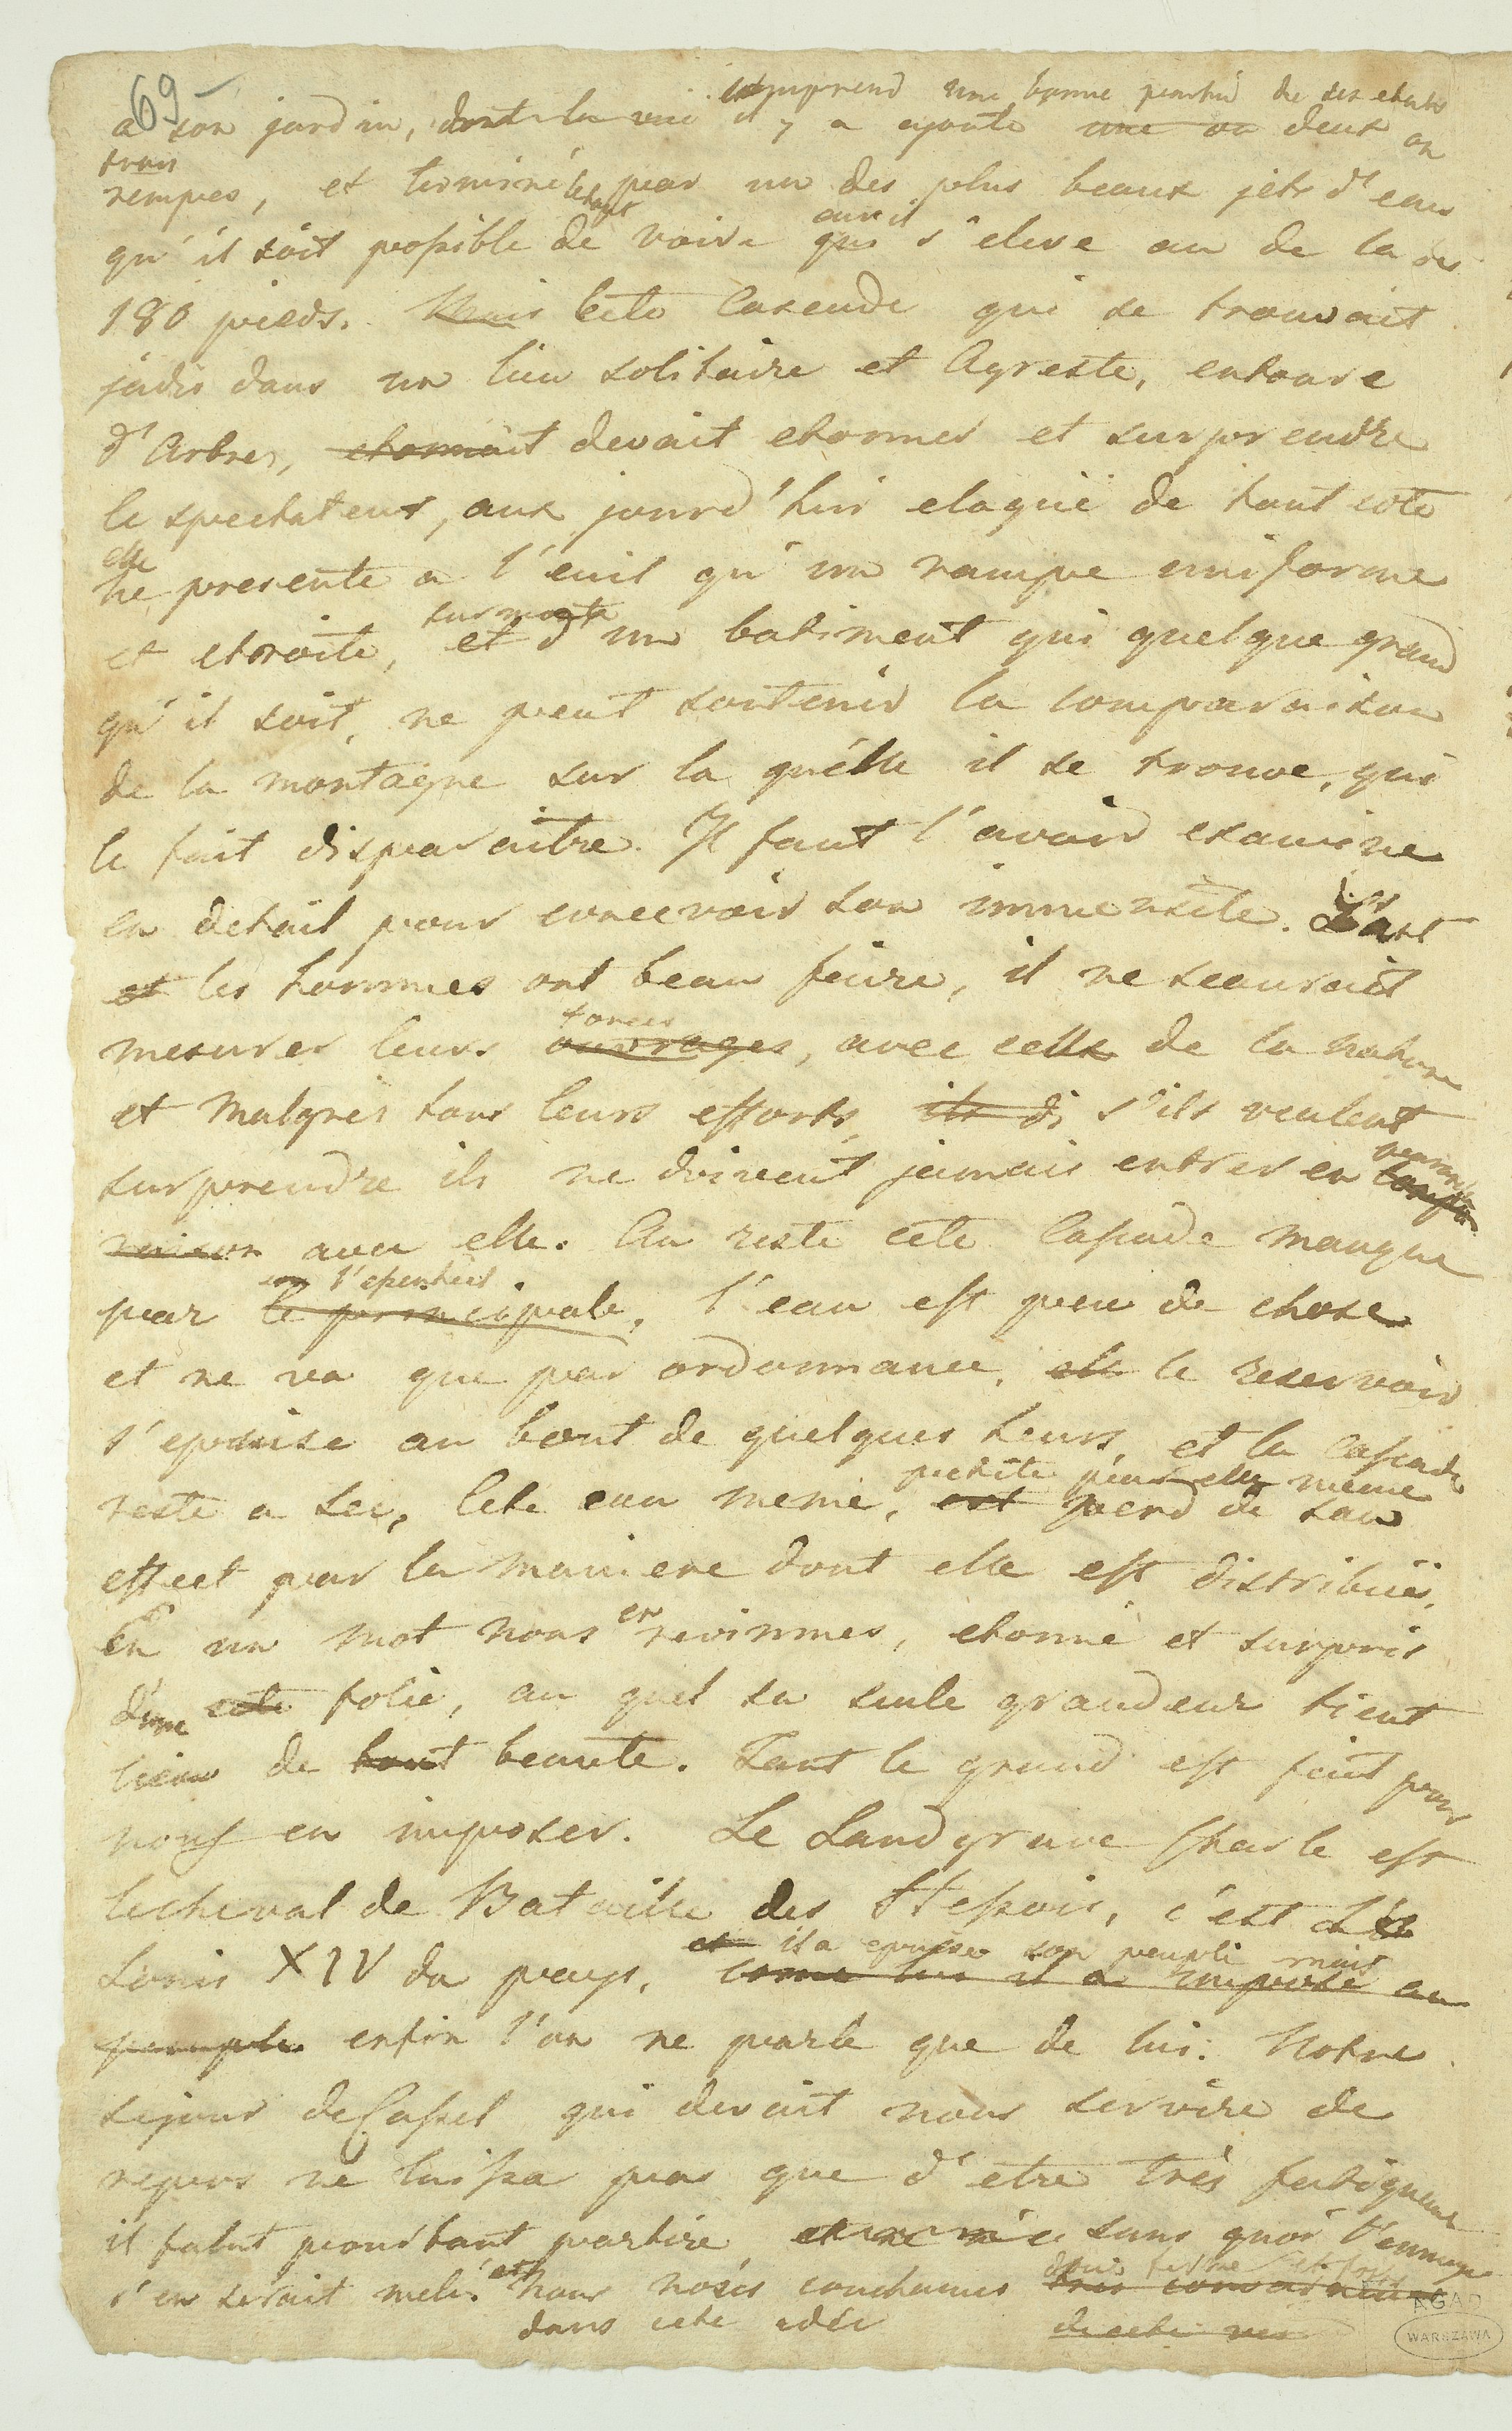 69
comprend une bonne partie de ses etats
a son jardin, dont la vuë il y a ajoute une ou deux ou
trois
rempes, et terminé le tout par un des plus beaux jets d'eau
qu'il soit possible de voire qui s'eleve au de la des
180 pieds. Mais Cete Cascade qui se trouvait
jadis dans un lieu solitaire et Agreste, entouré
d'Arbres, etonnait devait etonner et surprendre
le spectateur, aux jourd'hui elaguë de tout coté
elle
ne presente a l'euil qu'un rampe uniforme
surmonté
et etroite, et d'un batiment qui quelque grand
qu'il soit, ne peut soutenir la comparaison
de la montagne sur la quélle il se trouve, qui
le fait disparaitre. Il faut l'avoir examiné
en detail pour concevoir son immensité. L'art
et les hommes ont beau faire, il ne scauroit
forces
mesurer leurs ouvrages, avec celle de la nature
et malgrès tous leurs efforts, ils di s'ils veulent
surprendre ils ne doivent jamais entrer en compa
raison avec elle. Au reste cete Cascade manque
en l'essentiel
par le principale, l'eau est peu de chose
et ne va que par ordonnance, elle le reservoir
s'epouise au bout de quelques heurs, et la Cascade
petite par elle même
reste a sec, Cete eau meme, est perd de son
effect par la maniere dont elle est distribuëe.
En un mot nous en revinmes, etonné et surpris
d'une cete folie, au quel sa seule grandeur tient
lieu de tout beauté. Tant le grand est fait pour
nous en imposer. Le Landgrave Charle est
le cheval de Bataille des Hessois, c'est le
et il a epuisé son peuple mais
Louis XIV du pays, come lui il a imposé au
peuple enfin l'on ne parle que de lui. Notre
sejour de Cassel qui devait nous servire de
repos ne laissa pas que d'etre très fatiguant
il falut pourtant partire sans quoi l'ennuye
s'en serait melé. et nous couchames
dans cete idée
AGAD
WARSZAWA